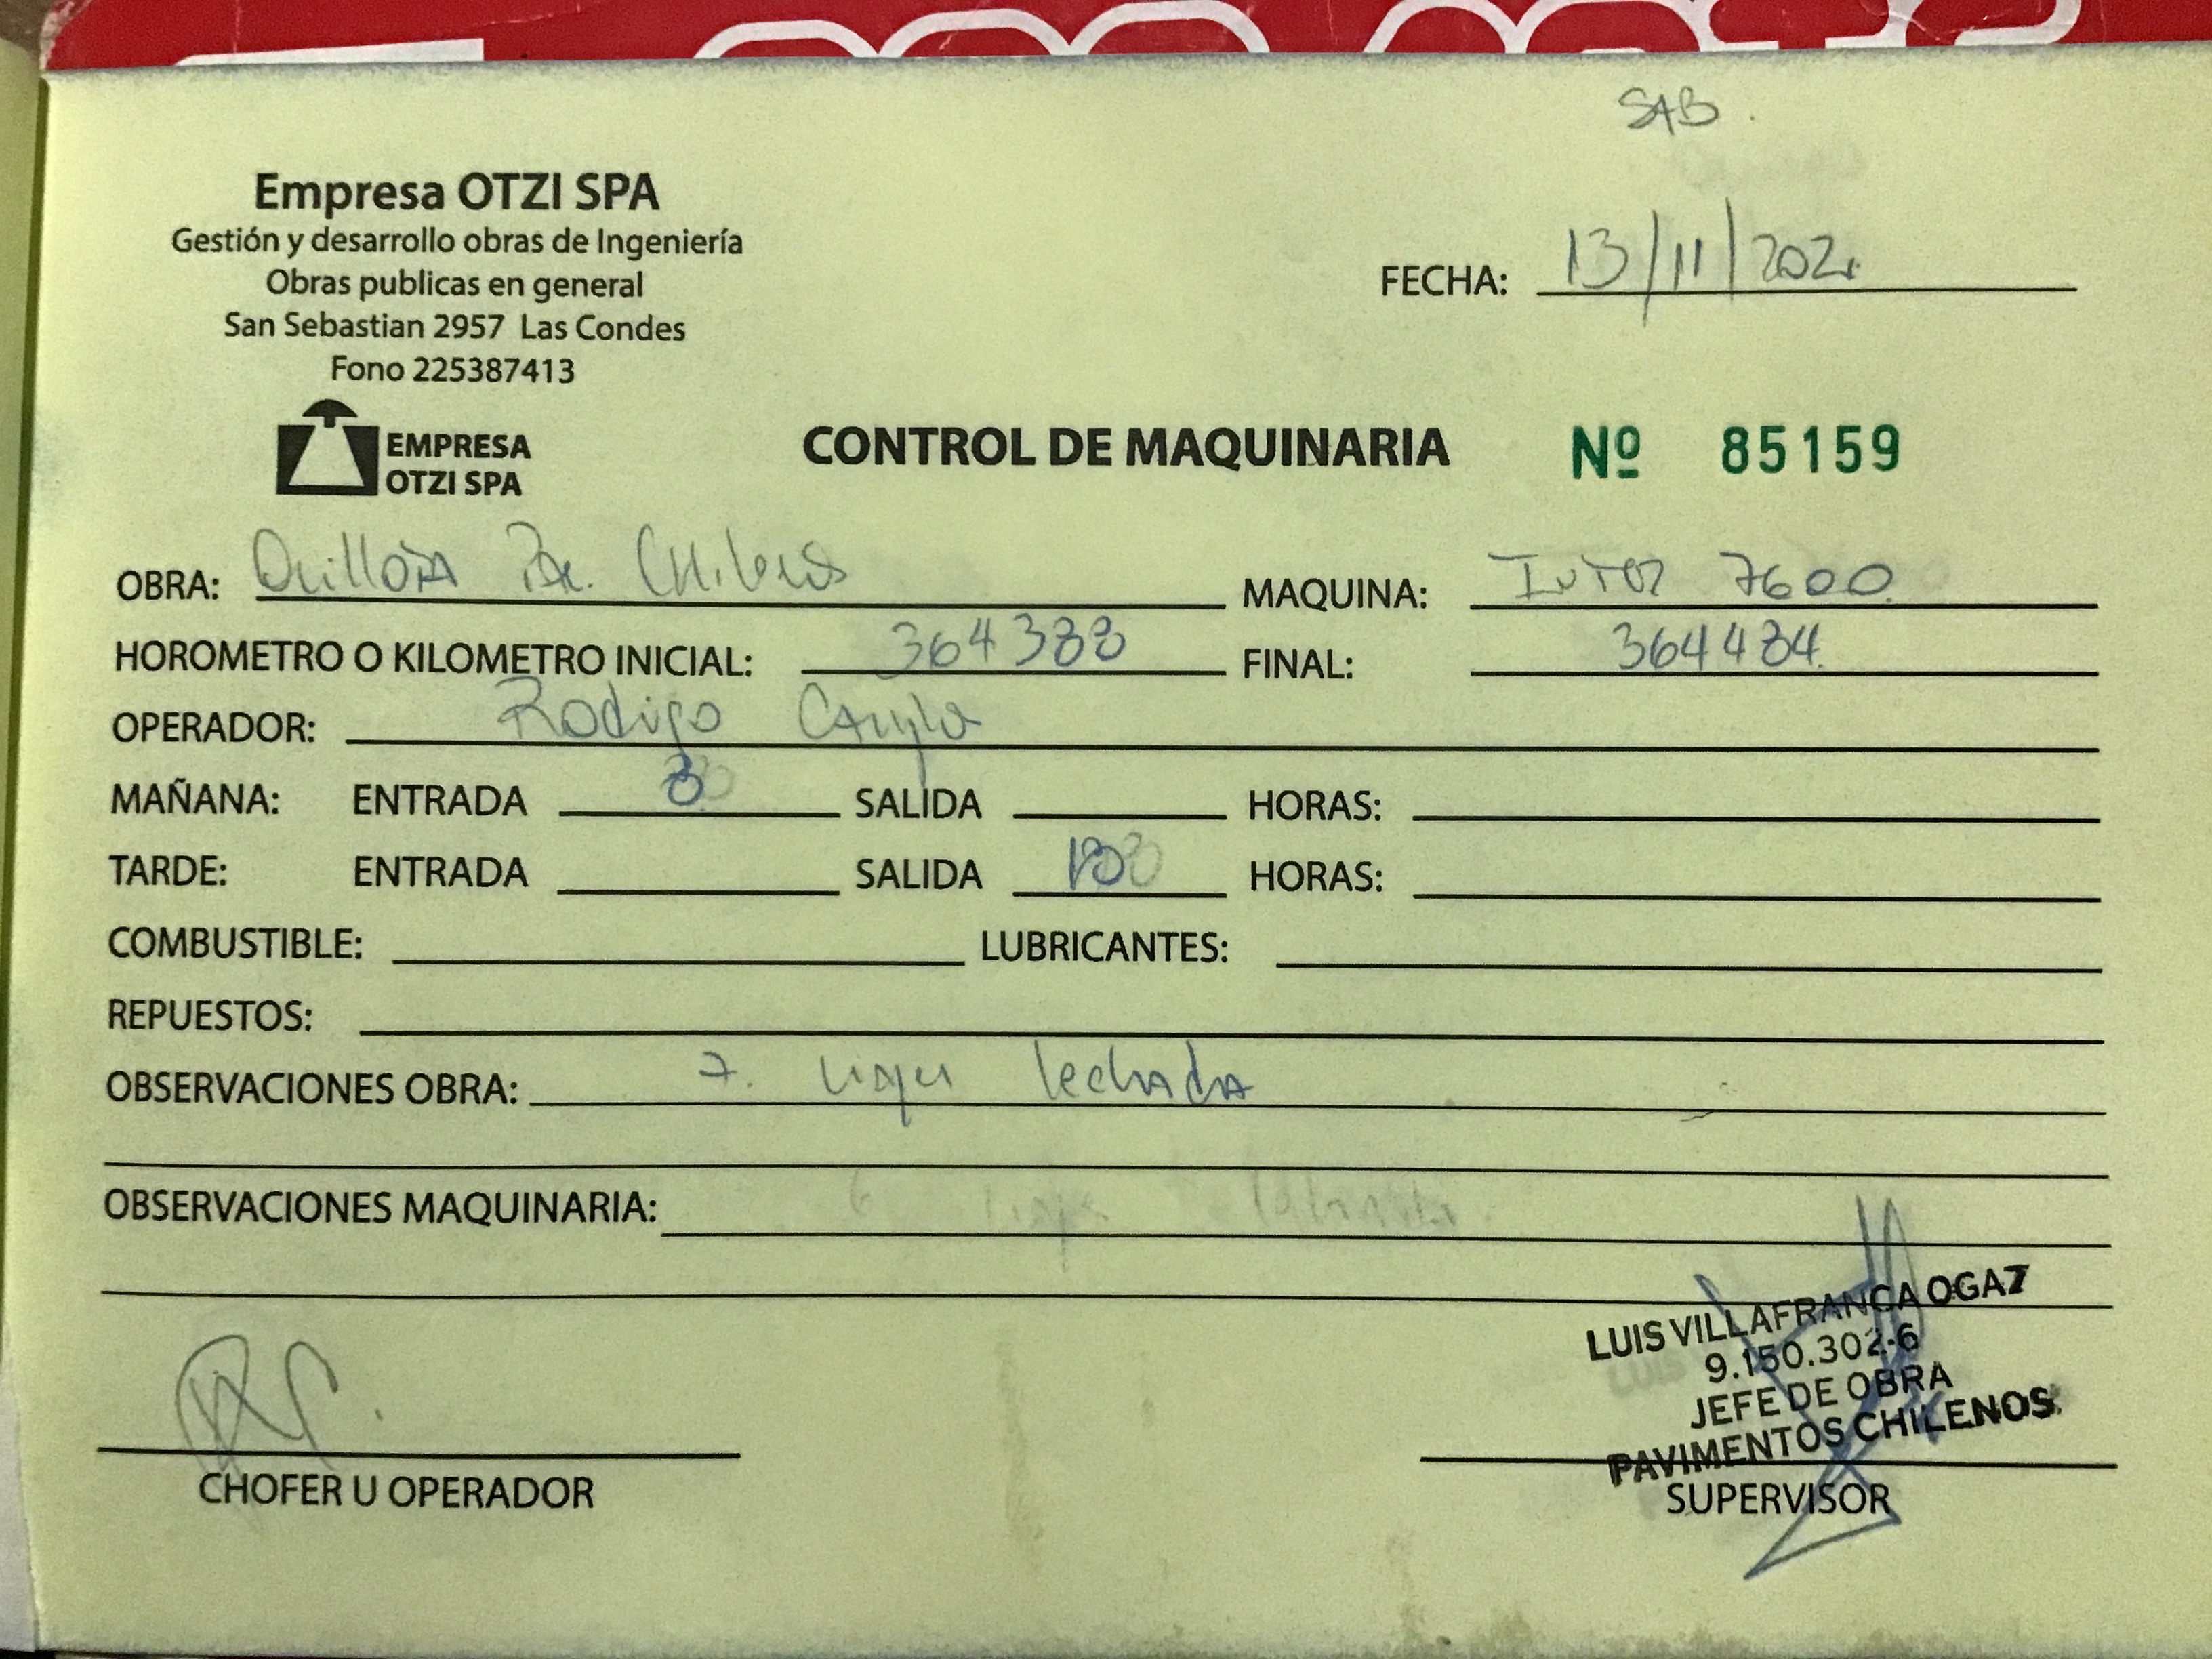 SAB
Empresa OTZI SPA
Gestión y desarrollo obras de Ingeniería
Obras publicas en general
San Sebastian 2957 Las Condes
Fono 225387413
FECHA: 13/11/202
EMPRESA
OTZI SPA
CONTROL DE MAQUINARIA Nº 85159
OBRA: Quillota Pav. Chilenos MAQUINA: Inter 7600
HOROMETRO O KILOMETRO INICIAL: 364380 FINAL: 364484
OPERADOR: Rodrigo
MAÑANA: ENTRADA 8 SALIDA HORAS:
TARDE: ENTRADA SALIDA 18 HORAS:
COMBUSTIBLE: LUBRICANTES:
REPUESTOS:
OBSERVACIONES OBRA: 7. lechada
OBSERVACIONES MAQUINARIA:
LUIS VILLAFRANCA OGAZ
9.150.302-6
JEFE DE OBRA
PAVIMENTOS CHILENOS
CHOFER U OPERADOR
SUPERVISOR